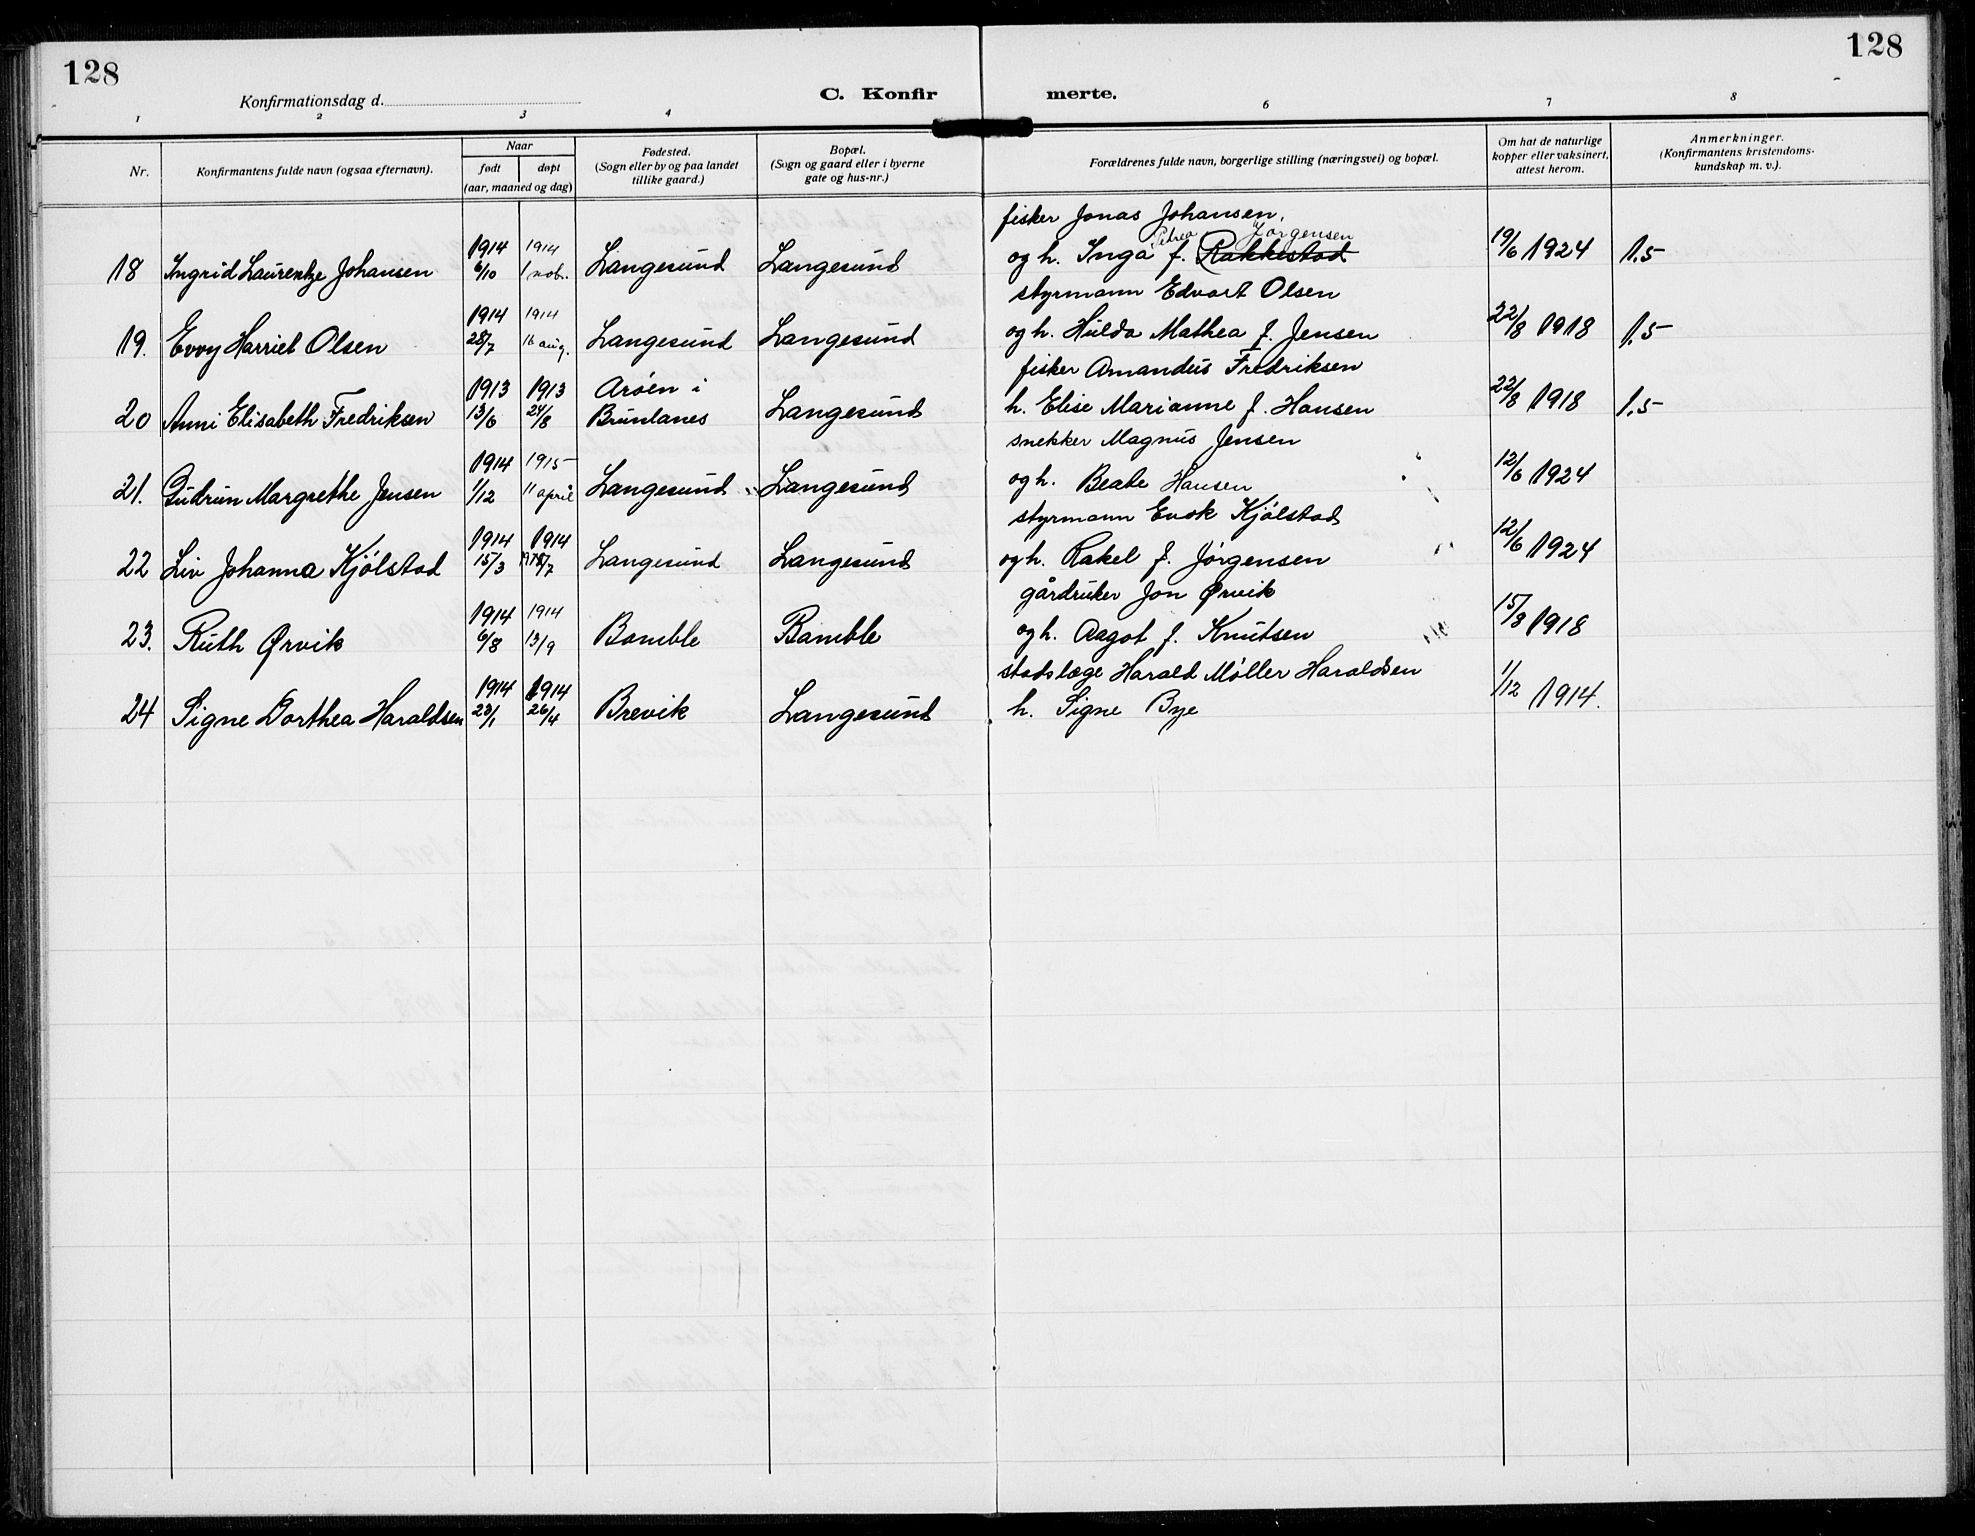 128
128
Konfirmationsdag d.
C. Konfir
merte.
1 2 3 4 6 7 8
Nr.
Konfirmantens fulde navn (ogsaa efternavn).
Naar
født døpt
(aar, maaned og dag)
Fødested.
(Sogn eller by og paa landet
tillike gaard.)
Bopæl.
(Sogn og gaard eller i byerne
gate og hus-nr.)
Forældrenes fulde navn, borgerlige stilling (næringsvei) og bopæl.
Om hat de naturlige
kopper eller vaksinert,
attest herom.
Anmerkninger.
(Konfirmantens kristendoms-
kundskap m. v.).
fisker Jonas Johansen,
Petrea Jørgensen
1914 1914
18 Ingrid Laurentze Johansen 6/10 1 nov. Langesund Langesund og h. Inga f. Rakkestad 19/6 1924 1.5
styrmann Edvart Olsen
1914 1914
19. Evvy Harriet Olsen 28/7 16 aug. Langesund Langesund og h. Hulda Mathea f. Jensen 22/8 1918 1.5
fisker Amandus Fredriksen
1913 1913 Arøen i
20 Anni Elisabeth Fredriksen 13/6 24/8 Brunlanes Langesund h. Elise Marianne f. Hansen 22/8 1918 1.5
snekker Magnus Jensen
1914 1915
21. Gudrun Margrethe Jensen 1/12 11 april Langesund Langesund og h. Beate Hansen 12/6 1924
styrmann Kjølstad
1914 1914
22 Liv Johanna Kjølstad 15/3 Langesund Langesund og h. Rakel f. Jørgensen 12/6 1924
gårdruker Jon Ørvik
1914 1914
23. Ruth Ørvik 6/8 13/9 Bamble Bamble og h. Aagot f. Knutsen 15/3 1918
stadslæge Harald Møller Haraldsen
1914 1914
24 Signe Dorthea Haraldsen 23/1 26/4 Brevik Langesund h. Signe Bye 1/12 1914.